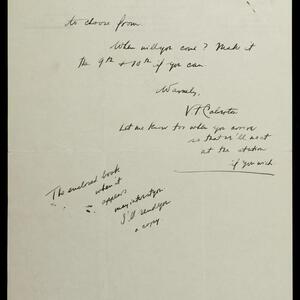 to choose from.
When will you come? Make it
the 9th & 10th if you can
Warmly,
VF Calverton
Let me know too when you arrive
so that we'll meet
at the station
if you wish
The enclosed book
when it
appears
may interest you.
I'll send you
a copy